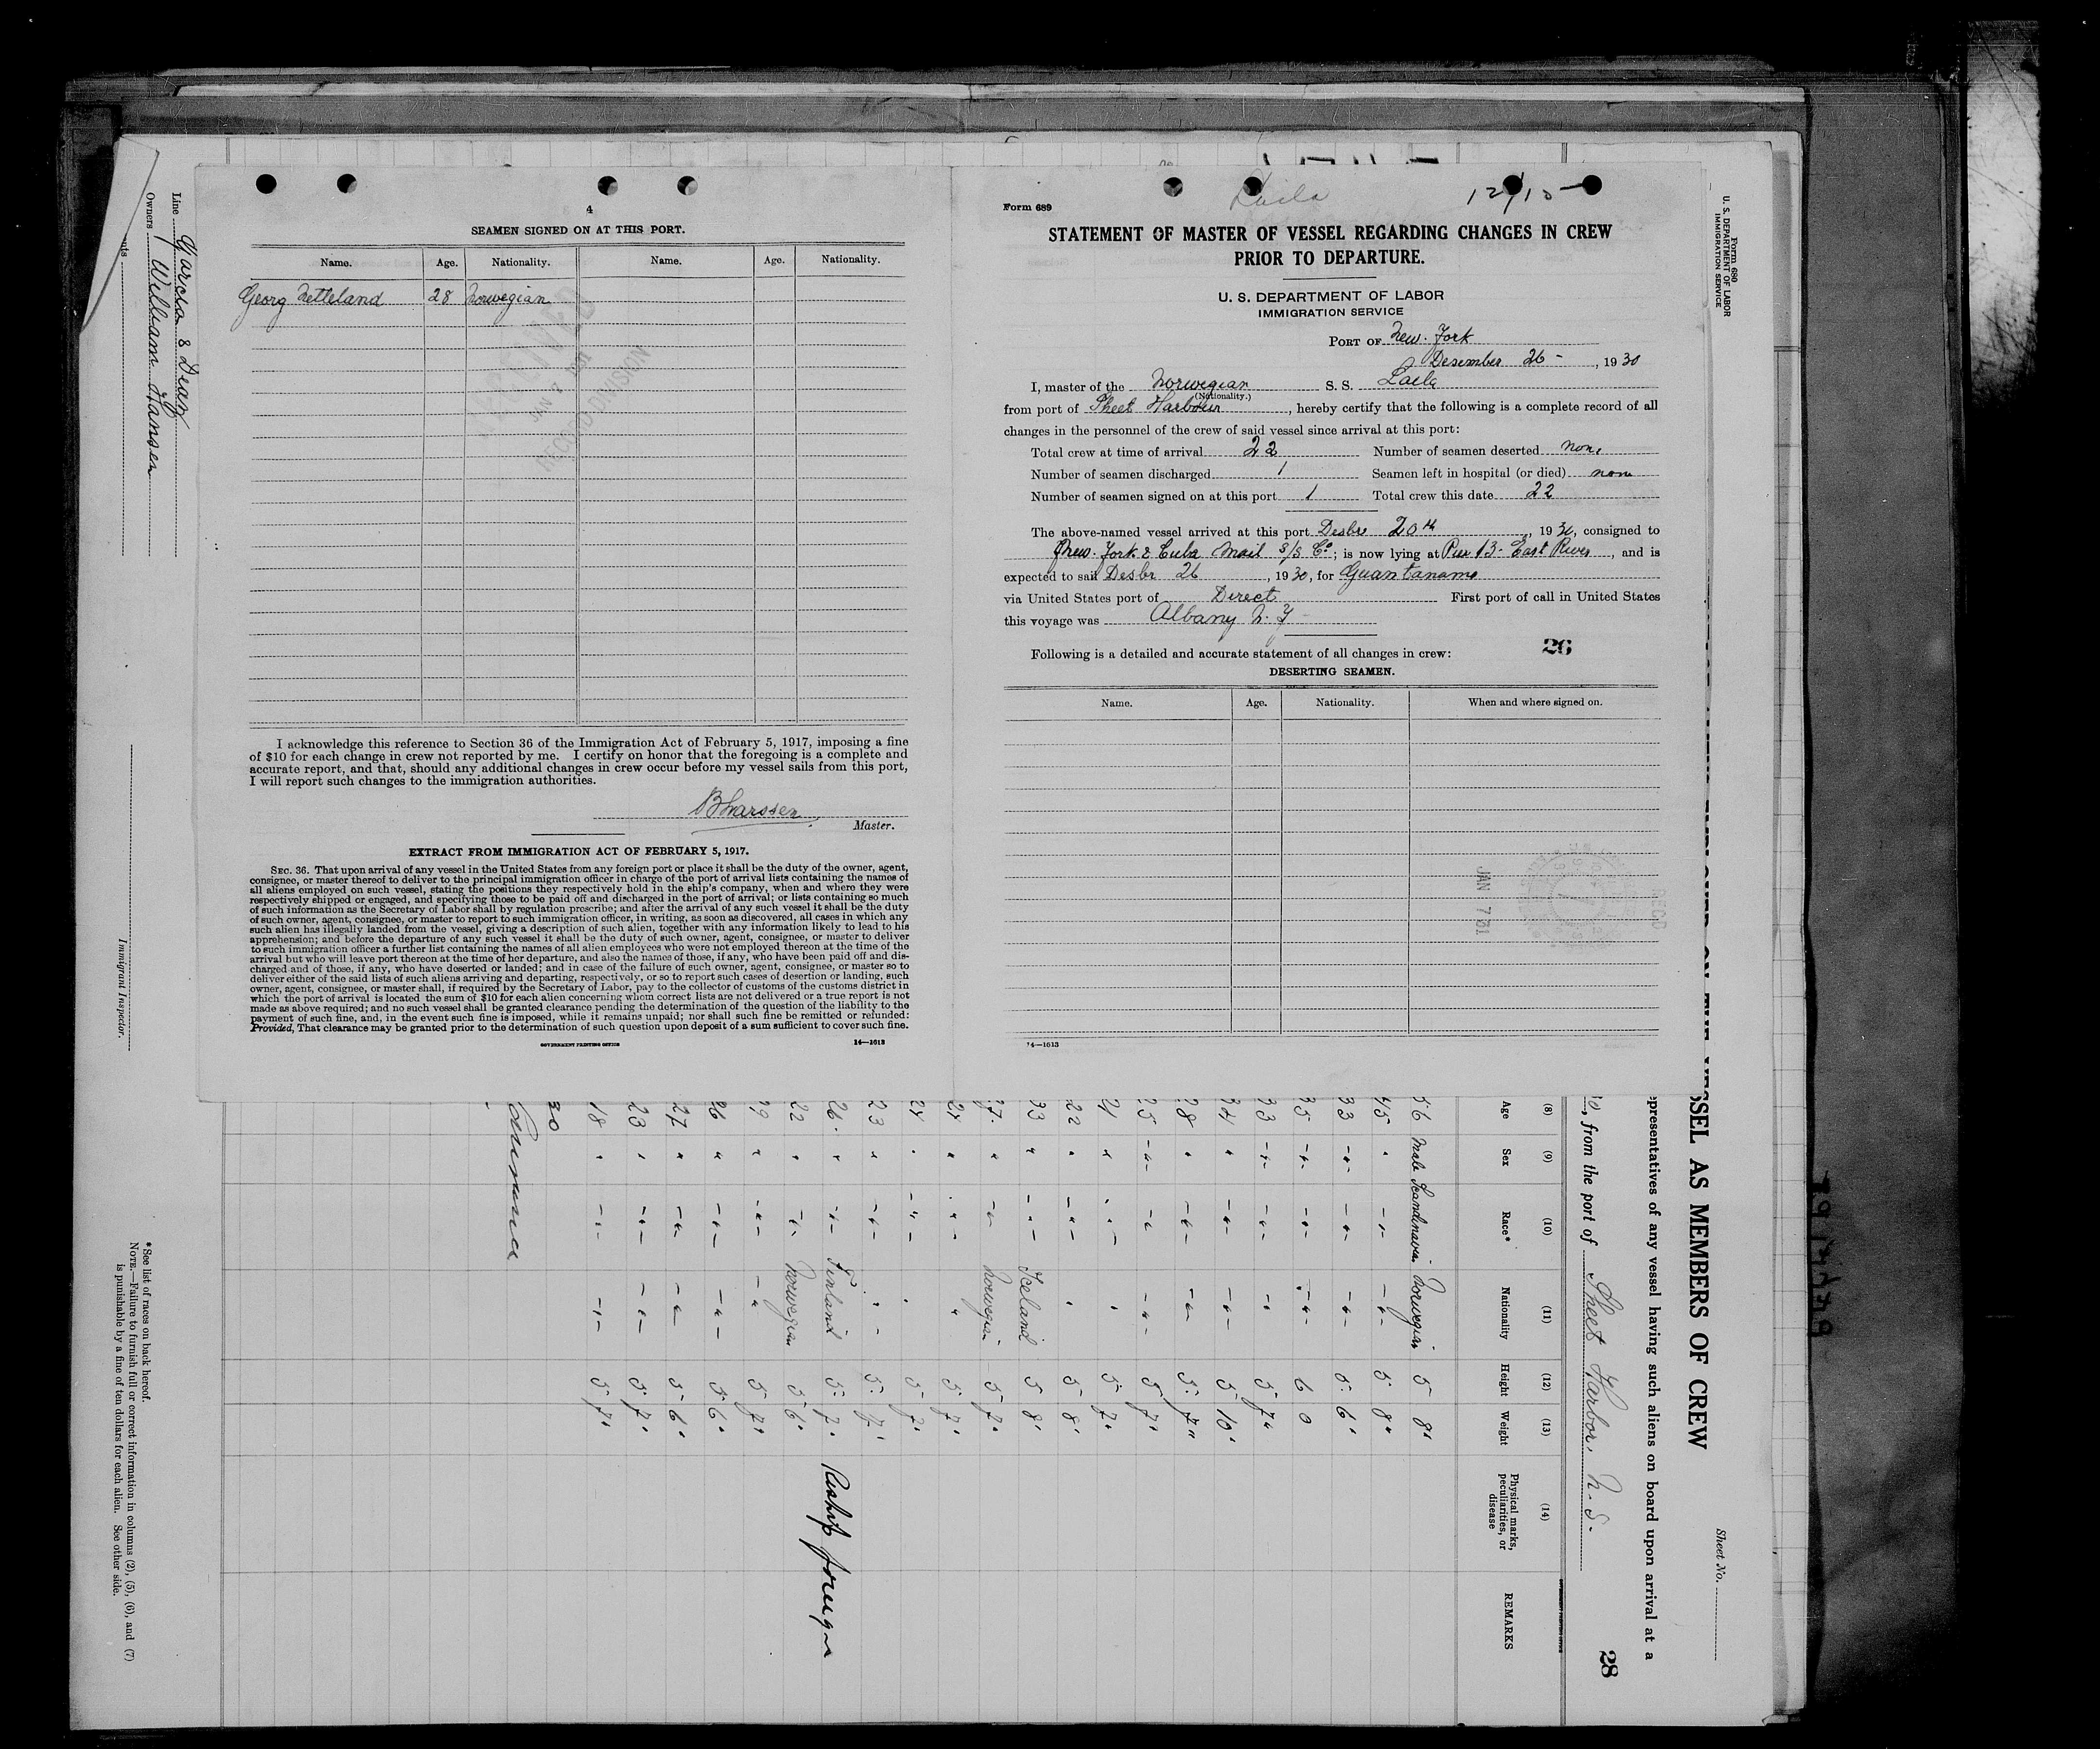 4
SEAMEN SIGNED ON AT THIS PORT.
Name. Age. Nationality. Name. Age. Nationality.
Georg Netteland 28 Norwegian
RECEIVED
JAN 1931
RECORD DIVISION
I acknowledge this reference to Section 36 of the Immigration Act of February 5, 1917, imposing a fine
of $10 for each change in crew not reported by me. I certify on honor that the foregoing is a complete and
accurate report, and that, should any additional changes in crew occur before my vessel sails from this port,
I will report such changes to the immigration authorities.
Master.
EXTRACT FROM IMMIGRATION ACT OF FEBRUARY 5, 1917.
SEC. 36. That upon arrival of any vessel in the United States from any foreign port or place it shall be the duty of the owner, agent,
consignee, or master thereof to deliver to the principal immigration officer in charge of the port of arrival lists containing the names of
all aliens employed on such vessel, stating the positions they respectively hold in the ship's company, when and where they were
respectively shipped or engaged, and specifying those to be paid off and discharged in the port of arrival; or lists containing so much
of such information as the Secretary of Labor shall by regulation prescribe; and after the arrival of any such vessel it shall be the duty
of such owner, agent, consignee, or master to report to such immigration officer, in writing, as soon as discovered, all cases in which any
such alien has illegally landed from the vessel, giving a description of such alien, together with any information likely to lead to his
apprehension; and before the departure of any such vessel it shall be the duty of such owner, agent, consignee, or master to deliver
to such immigration officer a further list containing the names of all alien employees who were not employed thereon at the time of the
arrival but who will leave port thereon at the time of her departure, and also the names of those, if any, who have been paid off and dis-
charged and of those, if any, who have deserted or landed; and in case of the failure of such owner, agent, consignee, or master so to
deliver either of the said lists of such aliens arriving and departing, respectively, or so to report such cases of desertion or landing, such
owner, agent, consignee, or master shall, if required by the Secretary of Labor, pay to the collector of customs of the customs district in
which the port of arrival is located the sum of $10 for each alien concerning whom correct lists are not delivered or a true report is not
made as above required; and no such vessel shall be granted clearance pending the determination of the question of the liability to the
payment of such fine, and, in the event such fine is imposed, while it remains unpaid; nor shall such fine be remitted or refunded:
Provided, That clearance may be granted prior to the determination of such question upon deposit of a sum sufficient to cover such fine.
GOVERNMENT PRINTING OFFICE 14—1613
Laila 12/15
Form 689
STATEMENT OF MASTER OF VESSEL REGARDING CHANGES IN CREW
PRIOR TO DEPARTURE.
U. S. DEPARTMENT OF LABOR
IMMIGRATION SERVICE
PORT OF New York
Desember 26 - , 1930
I, master of the Norwegian S. S. Laila
(Nationality.)
from port of Sheet Harbour , hereby certify that the following is a complete record of all
changes in the personnel of the crew of said vessel since arrival at this port:
Total crew at time of arrival 22 Number of seamen deserted non.
Number of seamen discharged 1 Seamen left in hospital (or died) non
Number of seamen signed on at this port 1 Total crew this date 22
The above-named vessel arrived at this port Desbr 20th , 1930, consigned to
New York & Cuba Mail S/S Co; is now lying at Pier 13 - East River , and is
expected to sail Desbr 26 , 1930, for Guantanamo
via United States port of Direct First port of call in United States
this voyage was Albany N. Y
26
Following is a detailed and accurate statement of all changes in crew:
DESERTING SEAMEN.
Name. Age. Nationality. When and where signed on.
JAN 7 31
REC'D
14—1613
Form 680
U. S. DEPARTMENT OF LABOR
IMMIGRATION SERVICE
Sheet No.
SSEL AS MEMBERS OF CREW
presentatives of any vessel having such aliens on board upon arrival at a
, from the port of Sheet Harbor. N. S.
28
(8) (9) (10) (11) (12) (13) (14)
Age Sex Race* Nationality Height Weight Physical marks, peculiarities, or disease REMARKS
56 Male Scandinavian Norwegian 5 8"
45 " " " 5 8"
33 " " " 5 6"
35 " " " 6 0
33 " " " 5 7"
34 " " " 5 10"
28 " " " 5 7"
25 " " " 5 7"
21 " " " 5 7"
22 " " " 5 8"
33 " " Iceland 5 8"
27 " " Norwegian 5 7"
24 " " " 5 7"
24 " " " 5 7"
23 " " " 5 7"
26 " " Finland 5 7" Reship foreign
22 " " Norwegian 5 6"
29 " " " 5 7"
26 " " " 5 6"
27 " " " 5 6"
23 " " " 5 7"
18 " " " 5 7"
30
Line Garcia & Diaz
Owners William Hansen
Immigrant Inspector.
*See list of races on back hereof.
NOTE.—Failure to furnish full or correct information in columns (2), (5), (6), and (7)
is punishable by a fine of ten dollars for each alien. See other side.